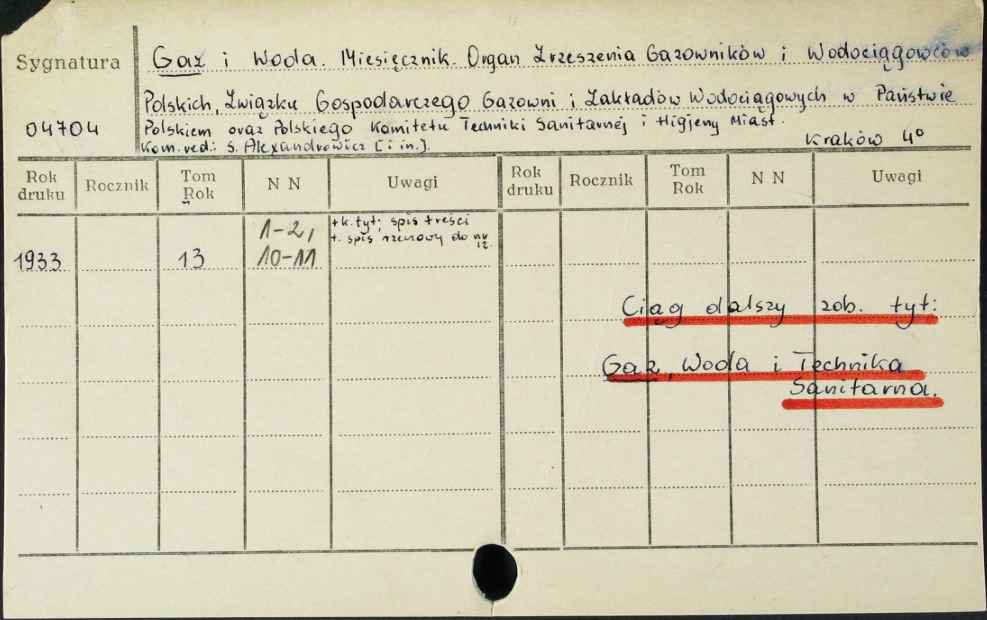 Sygnatura
Gaz i Woda. Miesięcznik. Organ Zrzeszenia Gazowników i Wodociągowców
Polskich, Związku Gospodarczego Gazowni i Zakładów Wodociągowych w Państwie
04704
Polskiem oraz Polskiego Komitetu Techniki Sanitarnej i Higjeny Miast.
Kom. red.: S. Alexandrowicz [i in.].
Kraków 4°
Rok druku Rocznik Tom Rok N N Uwagi Rok druku Rocznik Tom Rok N N Uwagi
1933 13 1-2, 10-11
+k. tyt; spis treści
+. spis rzeczowy do nr 12.
Ciąg dalszy zob. tyt:
Gaz, Woda i Technika
Sanitarna.